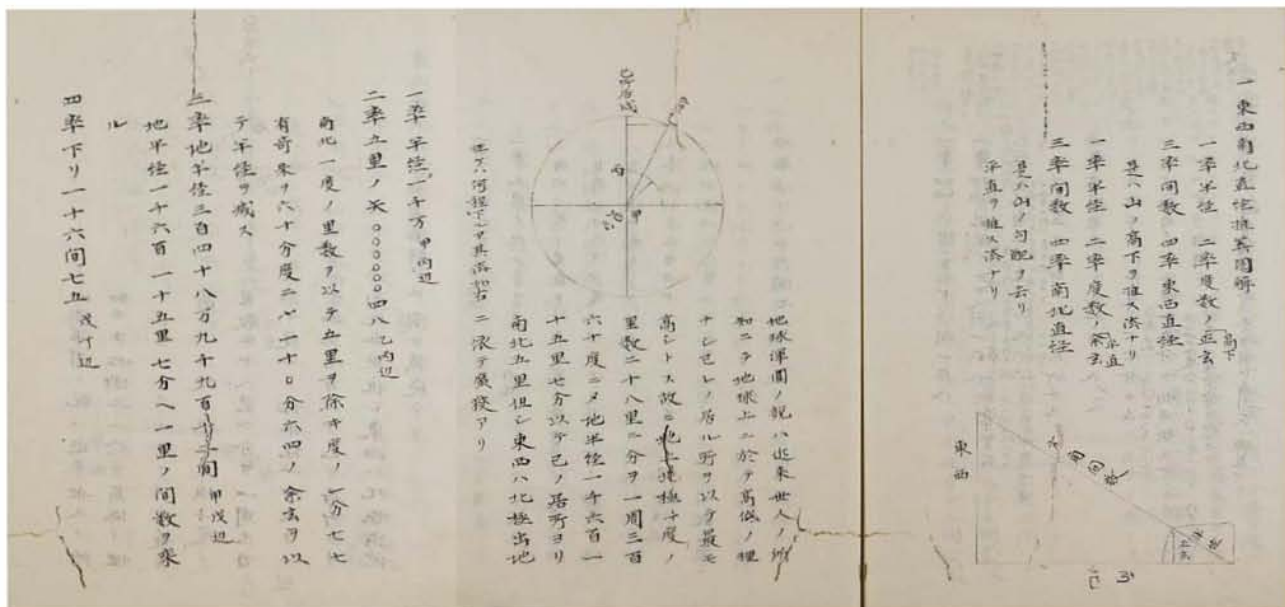 一 東西南北直径推算圖解
一率半径 二率度数ノ正玄 高下
三率間数 四率東西直径
是ハ山ノ高下ヲ推ス法ナリ
一率半径 二率度数ノ余玄 平直
三率間数 四率南北直径
是ハ山ノ勾配ヲ云リ
平直ヲ推ス法ナリ
東西
正玄
地球渾圓ノ説ハ近来世人ノ所
知ニテ地球上ニ於テ高低ノ理
ナシセレノ居ル所ヲ以テ最モ
高シトス故ニ
里数二十八里二分ヲ一周三百
六十度ニメ地半径一千六百一
十五里七分以テ己ノ居所ヨリ
南北五里但シ東西ハ北極出地
ニ依テ廣狭アリ
甲
丙
一率半径一千万 甲丙辺
二率五里ノ矢〇〇〇〇〇〇四八 乙丙辺
南北一度ノ里数ヲ以テ五里ヲ除キ度ノ一分七七
有奇来ヲ六十分度ニメ一十〇分六四ノ余玄ヲ以
テ半径ヲ減ス
三率地半径三百四十八万九千九百十二間 甲戊辺
地半径一千六百一十五里七分ヘ一里ノ間数ヲ乗
ル
四率下リ一十六間七五 戊丁辺